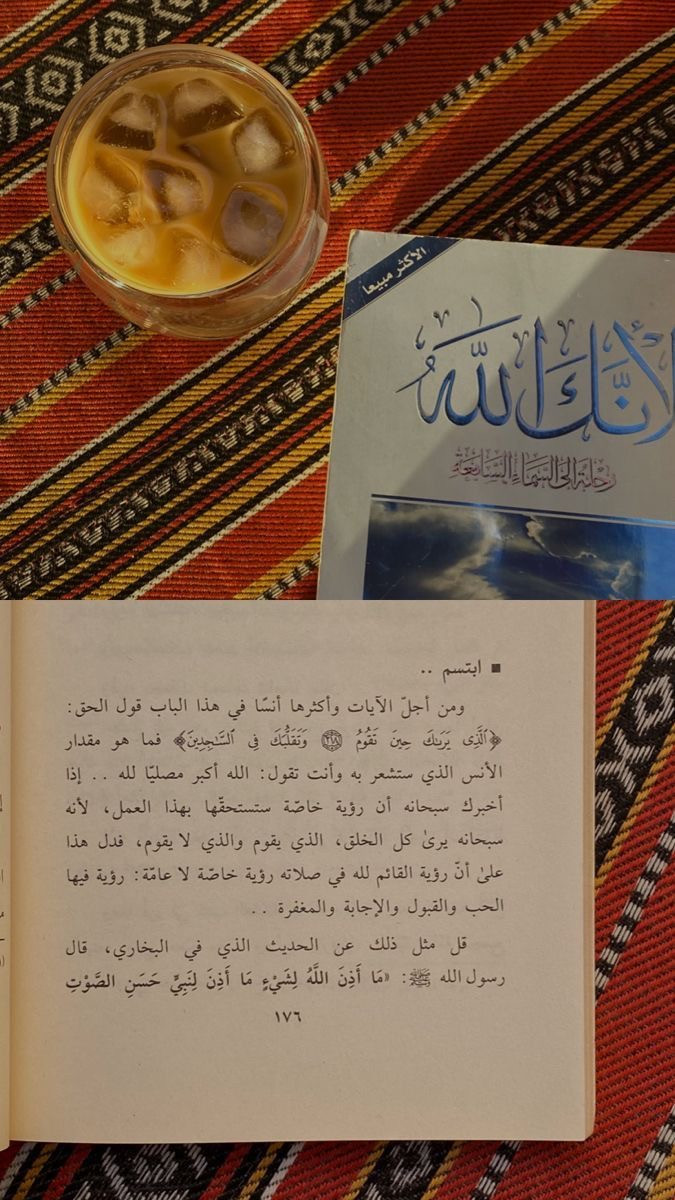 الأكثر مبيعا
لأنك الله
رحلة إلى السماء السابعة
■ ابتسم ..
ومن أجلّ الآيات وأكثرها أنسًا في هذا الباب قول الحق:
﴿ٱلَّذِى يَرَىٰكَ حِينَ تَقُومُ ۝٢١٨ وَتَقَلُّبَكَ فِى ٱلسَّٰجِدِينَ﴾ فما هو مقدار
الأنس الذي ستشعر به وأنت تقول: الله أكبر مصليًا لله .. إذا
أخبرك سبحانه أن رؤية خاصّة ستستحقّها بهذا العمل، لأنه
سبحانه يرىٰ كل الخلق، الذي يقوم والذي لا يقوم، فدل هذا
علىٰ أنّ رؤية القائم لله في صلاته رؤية خاصّة لا عامّة: رؤية فيها
الحب والقبول والإجابة والمغفرة ..
قل مثل ذلك عن الحديث الذي في البخاري، قال
رسول الله ﷺ: «مَا أَذِنَ اللَّهُ لِشَيْءٍ مَا أَذِنَ لِنَبِيٍّ حَسَنِ الصَّوْتِ
١٧٦